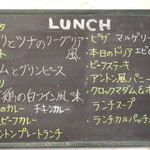 LUNCH
リとツナのリーグリア風
ムとグリンピース
鶏の白ワイン風味
カレー チキンカレー
ビーフカレー
ントンプレートランチ
・ピザ マルゲリー
・本日のドリア エビ
・ビーフステーキ
・アントン風パニー
・クロックマダム&
・ランチスープ
・ランチカルパッチ